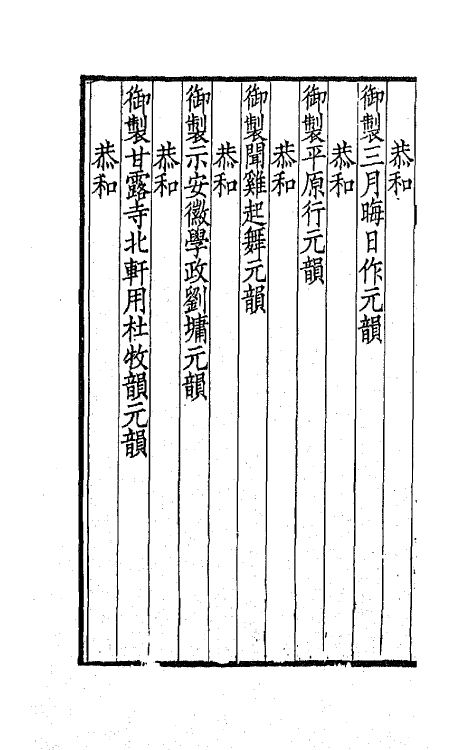 恭和
御製三月晦日作元韻
恭和
御製平原行元韻
恭和
御製聞雞起舞元韻
恭和
御製示安徽學政劉墉元韻
恭和
御製甘露寺北軒用杜牧韻元韻
恭和